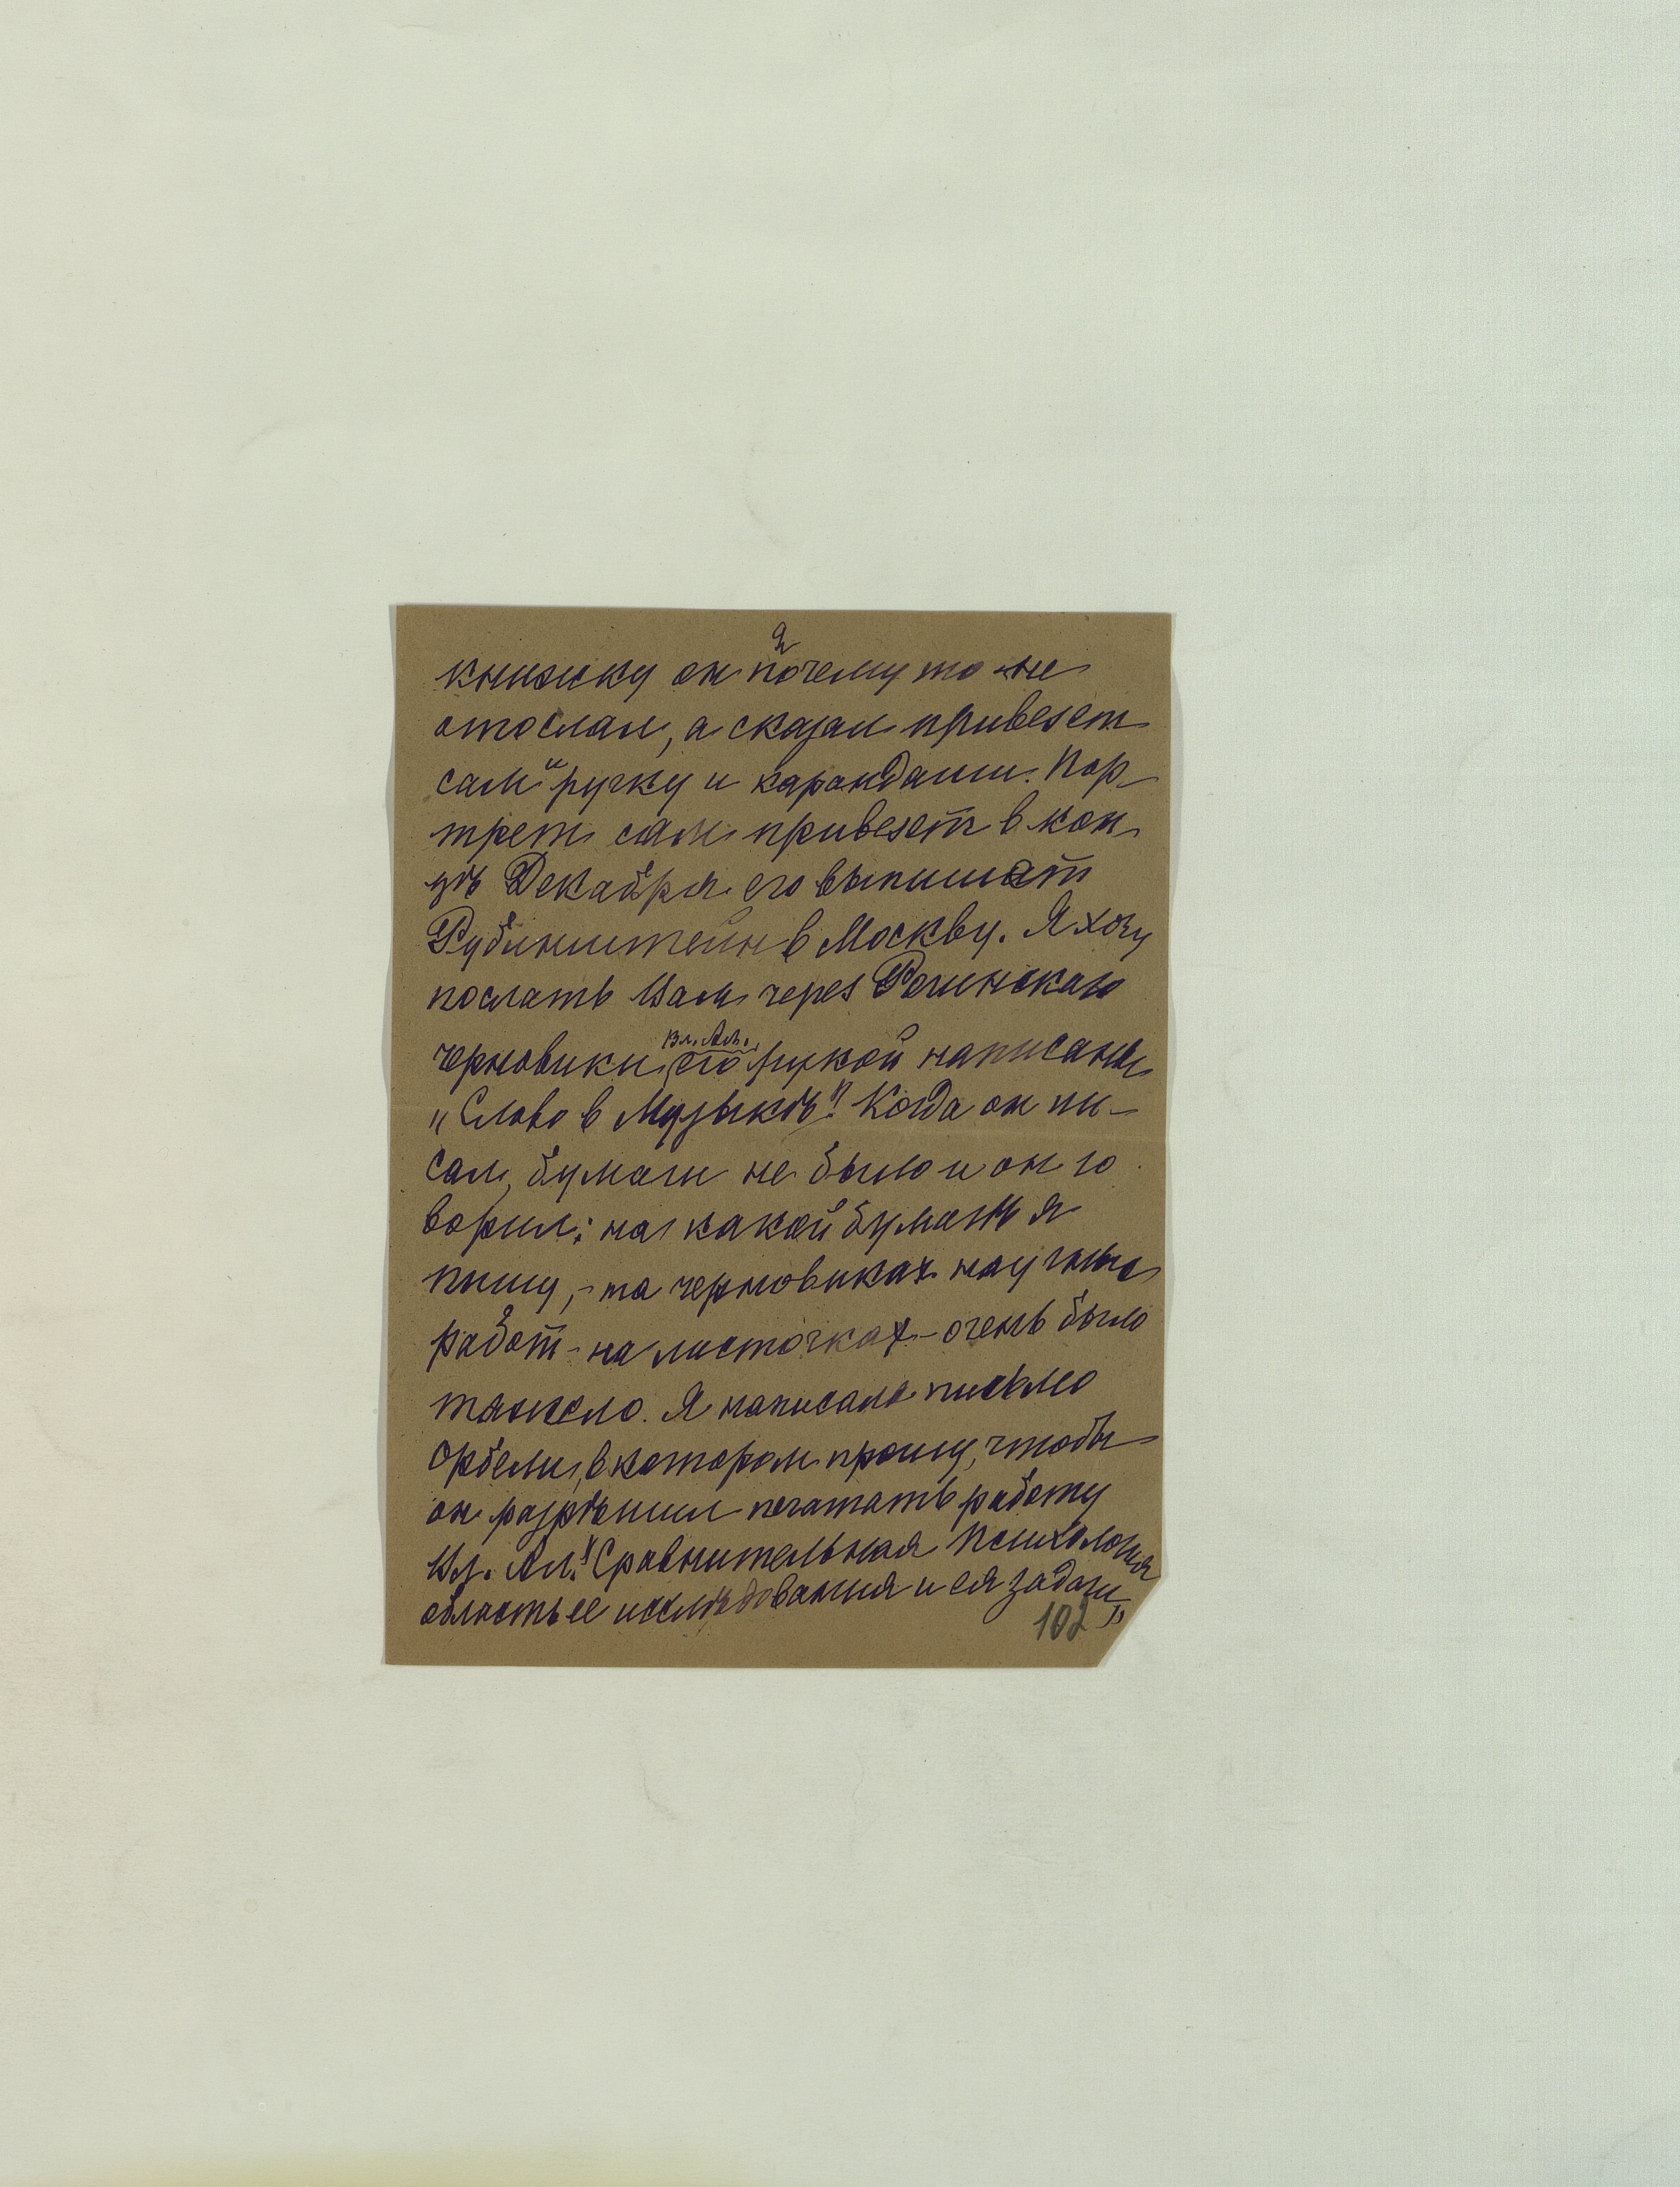 2
книжку он почему то не
отослал, а сказал привезет
сам и ручку и карандаши. Пор-
трет сам привезет в кон-
цѣ Декабря его выпишет
Рубинштейн в Москву. Я хочу
послать Вам через Рогинскаго
Вл. Ал.
черновики его рукой написаны
„Слово в Музыкѣ". Когда он пи-
сал, бумаги не было и он го
ворил: на какой бумагѣ я
пишу, - на черновиках научных
работ - на листочках - очень было
тяжело. Я написала письмо
Орбели, в котором прошу, чтобы
он разрѣшил печатать работу
Вл. Ал. "Сравнительная Психология
область ее исслѣдования и ея задачи"
102